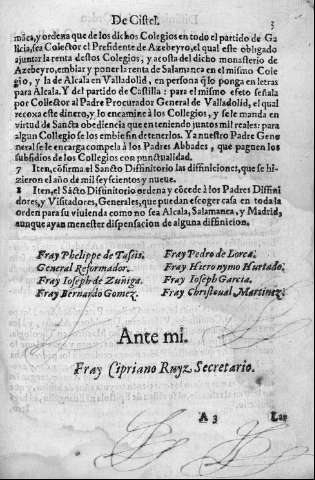 De Cistel.
3
máca, y ordena que de los dichos Colegios en todo el partido de Ga
licia, sea Colector el Presidente de Azebeyro, el qual este obligado
ajuntar la renta destos Colegios, y a costa del dicho monasterio de
Azebeyro, embiar y poner la renta de Salamanca en el mismo Cole
gio, y la de Alcala en Valladolid, en persona q̃ lo ponga en letras
para Alcala. Y del partido de Castilla: para el mismo efeto señala
por Collector al Padre Procurador General de Valladolid, el qual
recoxa este dinero, y lo encamine à los Colegios, y se le manda en
virtud de Sancta obediencia que en teniendo juntos mil reales: para
algun Colegio se los embie sin detenerlos. Ya nuestro Padre Gene
neral se le encarga compela à los Padres Abbades, que paguen los
subsidios de los Colegios con puntualidad.
7 Iten, cõfirma el Sancto Diffinitorio las diffiniciones, que se hi-
zieron el año de mil seyscientos y nueue.
8 Iten, el Sácto Diffinitorio ordena y cõcede à los Padres Diffini
dores, y Visitadores, Generales, que puedan escoger casa en toda la
orden para su viuienda como no sea Alcala, Salamanca, y Madrid,
aunque ayan menester dispensacion de alguna diffinicion.
Fray Phelippe de Tasis.
General Reformador.
Fray Ioseph de Zuñiga.
Fray Bernardo Gomez.
Fray Pedro de Lorca.
Fray Hieronymo Hurtado.
Fray Ioseph Garcia.
Fray Christoual Martinez.
Ante mi.
Fray Cipriano Ruyz Secretario.
A 3
Las